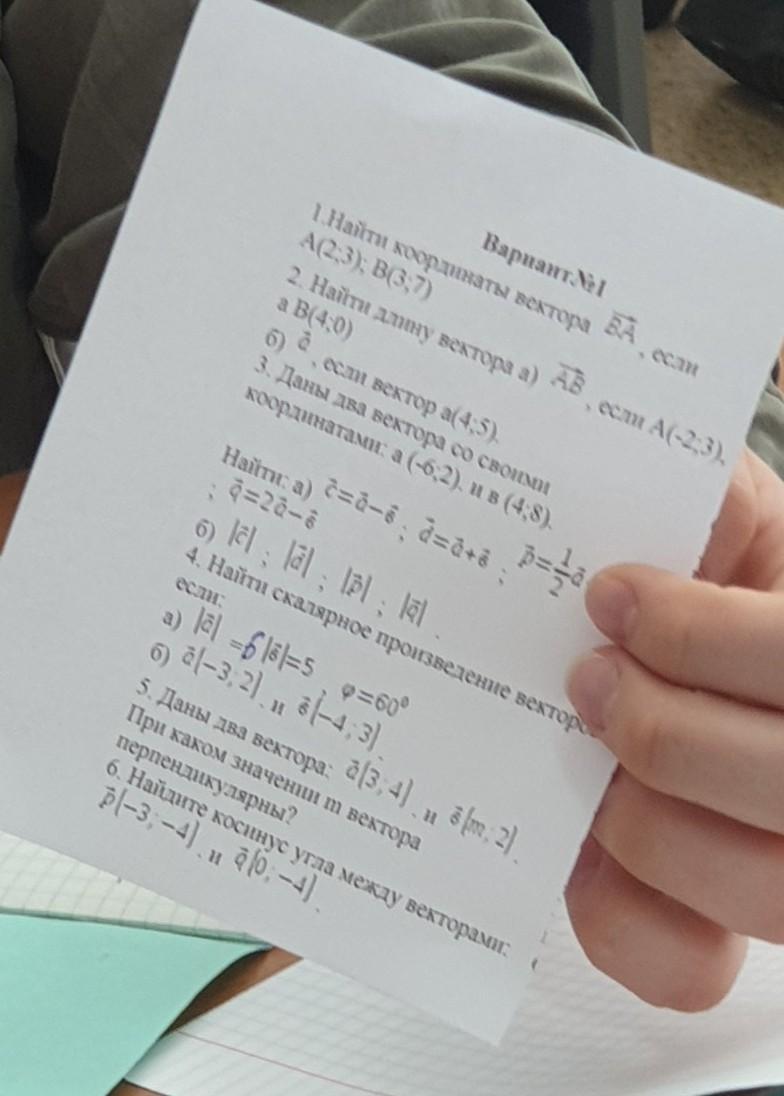 Вариант.№1
1.Найти координаты вектора BA⃗ , если
A(2;3); B(3;7)
2. Найти длину вектора а) AB⃗ , если A(-2;3),
а B(4;0)
б) a⃗ , если вектор a(4;5).
3. Даны два вектора со своими
координатами: a (-6;2). и в (4;8).
Найти: а) c⃗=a⃗−в⃗ ; d⃗=a⃗+в⃗ ; p⃗=1/2 a⃗
; q⃗=2a⃗−в⃗
б) |c⃗| ; |d⃗| ; |p⃗| ; |q⃗| .
4. Найти скалярное произведение
если:
а) |a⃗| =6 |в⃗|=5 ; φ=60°
б) a⃗(−3; 2) . и в⃗(−4; 3) .
5. Даны два вектора: a⃗(3; 4) . и в⃗(m; 2) .
При каком значении m вектора
перпендикулярны?
6. Найдите косинус угла между векторами:
p⃗(−3; −4) . и q⃗(0; −4) .